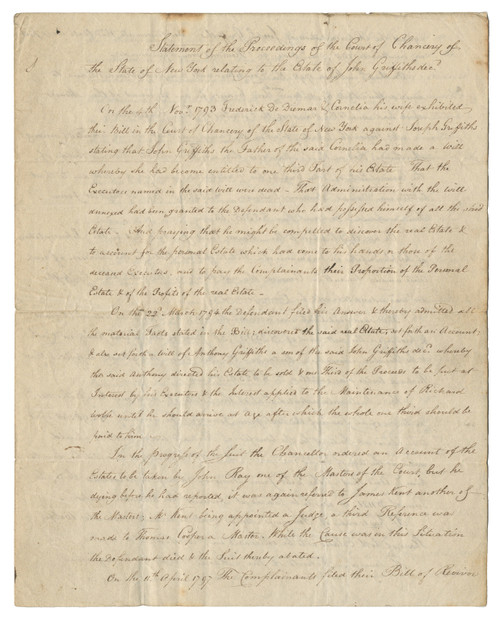 Statement of the Proceedings of the Court of Chancery of
the State of New York relating to the Estate of John Griffiths decd.
On the 4th Novr. 1793 Frederick De Diemar & Cornelia his wife exhibited
their Bill in the Court of Chancery of the State of New York against Joseph Griffiths
stating that John Griffiths the Father of the said Cornelia had made a Will
whereby she had become entitled to one third Part of his Estate That the
Executors named in the said will were dead - That Administration with the will
annexed had been granted to the Defendant who had possessed himself of all the said
Estate - And praying that he might be compelled to discover the real Estate &
to account for the personal Estate which had come to his hands or those of the
deceased Executors, and to pay the Complainants their Proportion of the Personal
Estate & of the Profits of the real Estate -
On the 22d March 1794 the Defendant filed his Answer & thereby admitted all
the material Facts stated in the Bill, discovered the said real Estate, set forth an Account,
& also set forth a Will of Anthony Griffiths a son of the said John Griffiths decd. whereby
the said Anthony directed his Estate to be sold & one Third of the Proceeds to be put at
Interest by his Executors & the Interest applied to the Maintenance of Richard
until he should arrive at Age after which the whole one third should be
paid to him
In the progress of the Suit the Chancellor ordered an Account of the
Estates to be taken by John Ray one of the Masters of the Court, but he
dying before he had reported, it was again referred to James Kent another of
the Masters; Mr Kent being appointed a Judge, a third Reference was
made to Thomas Cooper a Master. While the Cause was in this Situation
the Defendant died & the Suit thereby abated.
On the 11th April 1797 The Complainants filed their Bill of Revivor